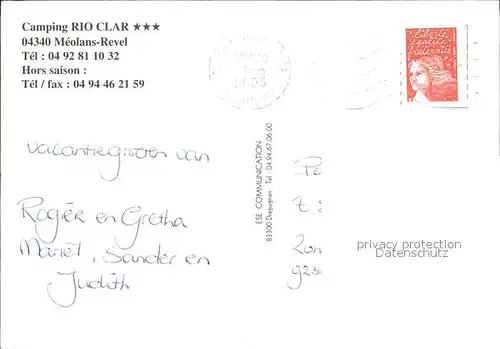 Camping RIO CLAR ★★★
04340 Méolans-Revel
Tél : 04 92 81 10 32
Hors saison :
Tél / fax : 04 94 46 21 59
liberté
égalité
fraternité
vacantiegroeten van
Rogér en Gretha
Mariël, Sander en
Judith
ESE COMMUNICATION
83300 Draguignan Tel : 04.94.67.06.00
privacy protection
Datenschutz